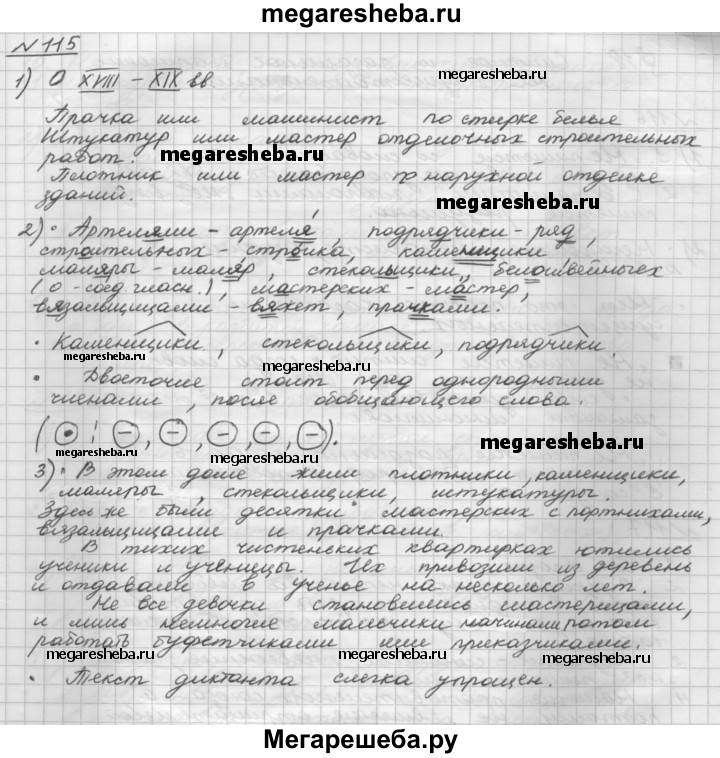 megaresheba.ru
№ 115
1) О XVIII – XIX вв
Прачка или машинист по стирке белья
Штукатур или мастер отделочных строительных
работ. megaresheba.ru megaresheba.ru
Плотник или мастер по наружной отделке
зданий. megaresheba.ru
2) • Артелями – артеля, подрядчики – ряд,
строительных – стройка, каменщики,
маляры – маляр, стекольщики, белошвейных
(о – соед. гласн.), мастерских – мастер,
вязальщицами – вяжет, прачками.
• Каменщики, стекольщики, подрядчики.
megaresheba.ru megaresheba.ru
• Двоеточие стоит перед однородными
членами, после обобщающего слова.
megaresheba.ru
megaresheba.ru
3) • В этом доме жили плотники, каменщики,
маляры, стекольщики, штукатуры.
Здесь же были десятки мастерских с портнихами,
вязальщицами и прачками.
В тихих чистеньких квартирках ютились
ученики и ученицы. Их привозили из деревень
и отдавали в ученье на несколько лет.
Не все девочки становились мастерицами,
и лишь немногие мальчики начинали потом
работать буфетчиками или приказчиками.
megaresheba.ru megaresheba.ru megaresheba.ru
• Текст диктанта слегка упрощен.
Мегарешеба.ру